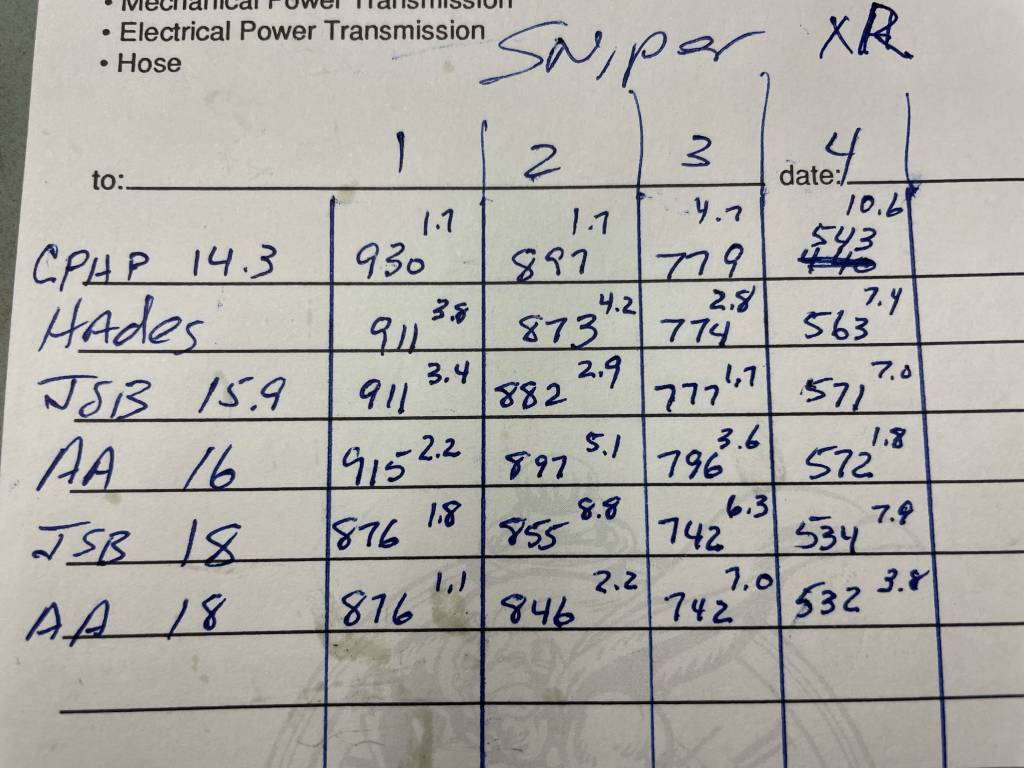 • Mechanical Power Transmission
• Electrical Power Transmission
• Hose
SNiper XR
1 2 3 4
to: date:
CPHP 14.3 930 1.7 897 1.7 779 4.7 543 10.6
HAdes 911 3.8 873 4.2 774 2.8 563 7.4
JSB 15.9 911 3.4 882 2.9 777 1.7 571 7.0
AA 16 915 2.2 897 5.1 796 3.6 572 1.8
JSB 18 876 1.8 855 8.8 742 6.3 534 7.9
AA 18 876 1.1 846 2.2 742 7.0 532 3.8